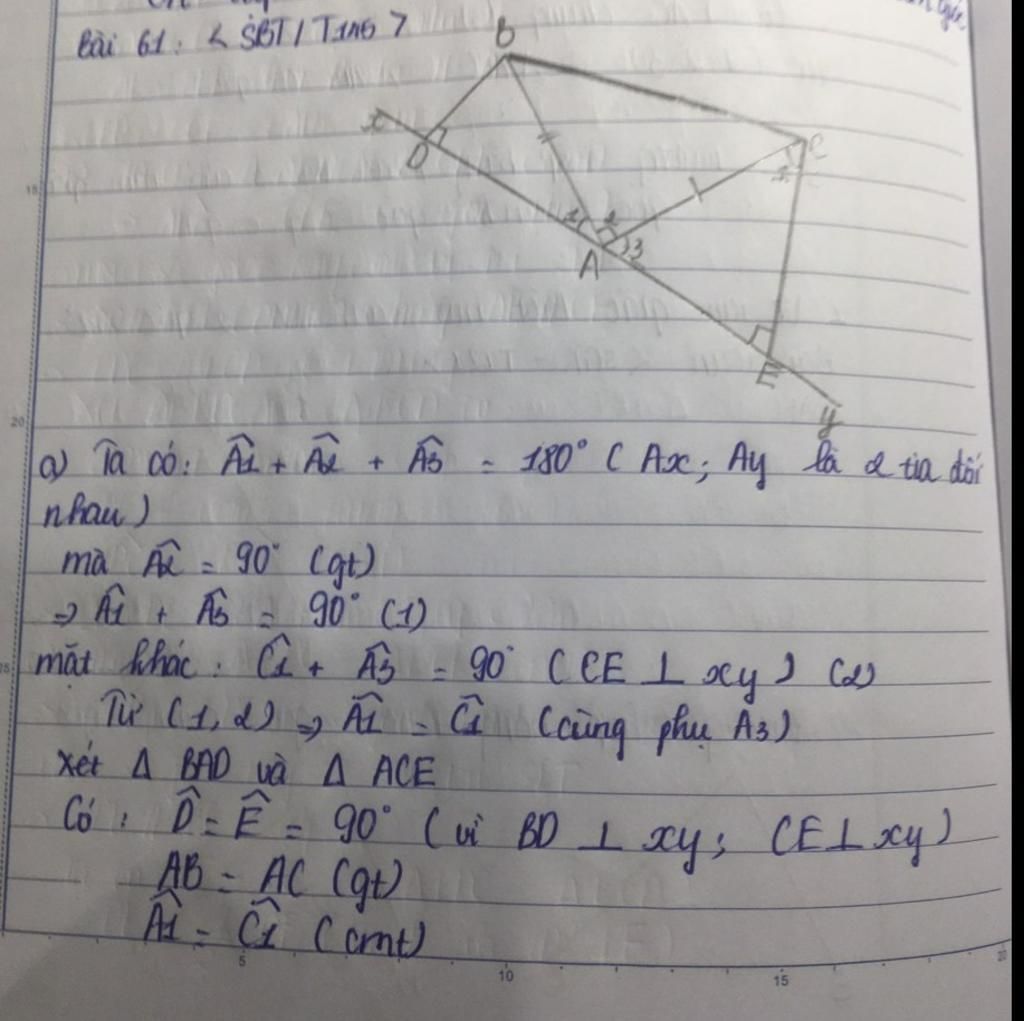 Bài 61: < SBT / T146 >
B
x
D
C
1
1 2
3
A
E
y
a) Ta có: Â1 + Â2 + Â3 = 180° ( Ax; Ay là 2 tia đối
nhau )
mà Â2 = 90° (gt)
=> Â1 + Â3 = 90° (1)
mặt khác: Ĉ1 + Â3 = 90° ( CE ⊥ xy ) (2)
Từ (1, 2) => Â1 = Ĉ1 (cùng phụ A3)
xét Δ BAD và Δ ACE
Có: D̂ = Ê = 90° ( vì BD ⊥ xy; CE ⊥ xy )
AB = AC (gt)
Â1 = Ĉ1 (cmt)
5 10 15
15
20